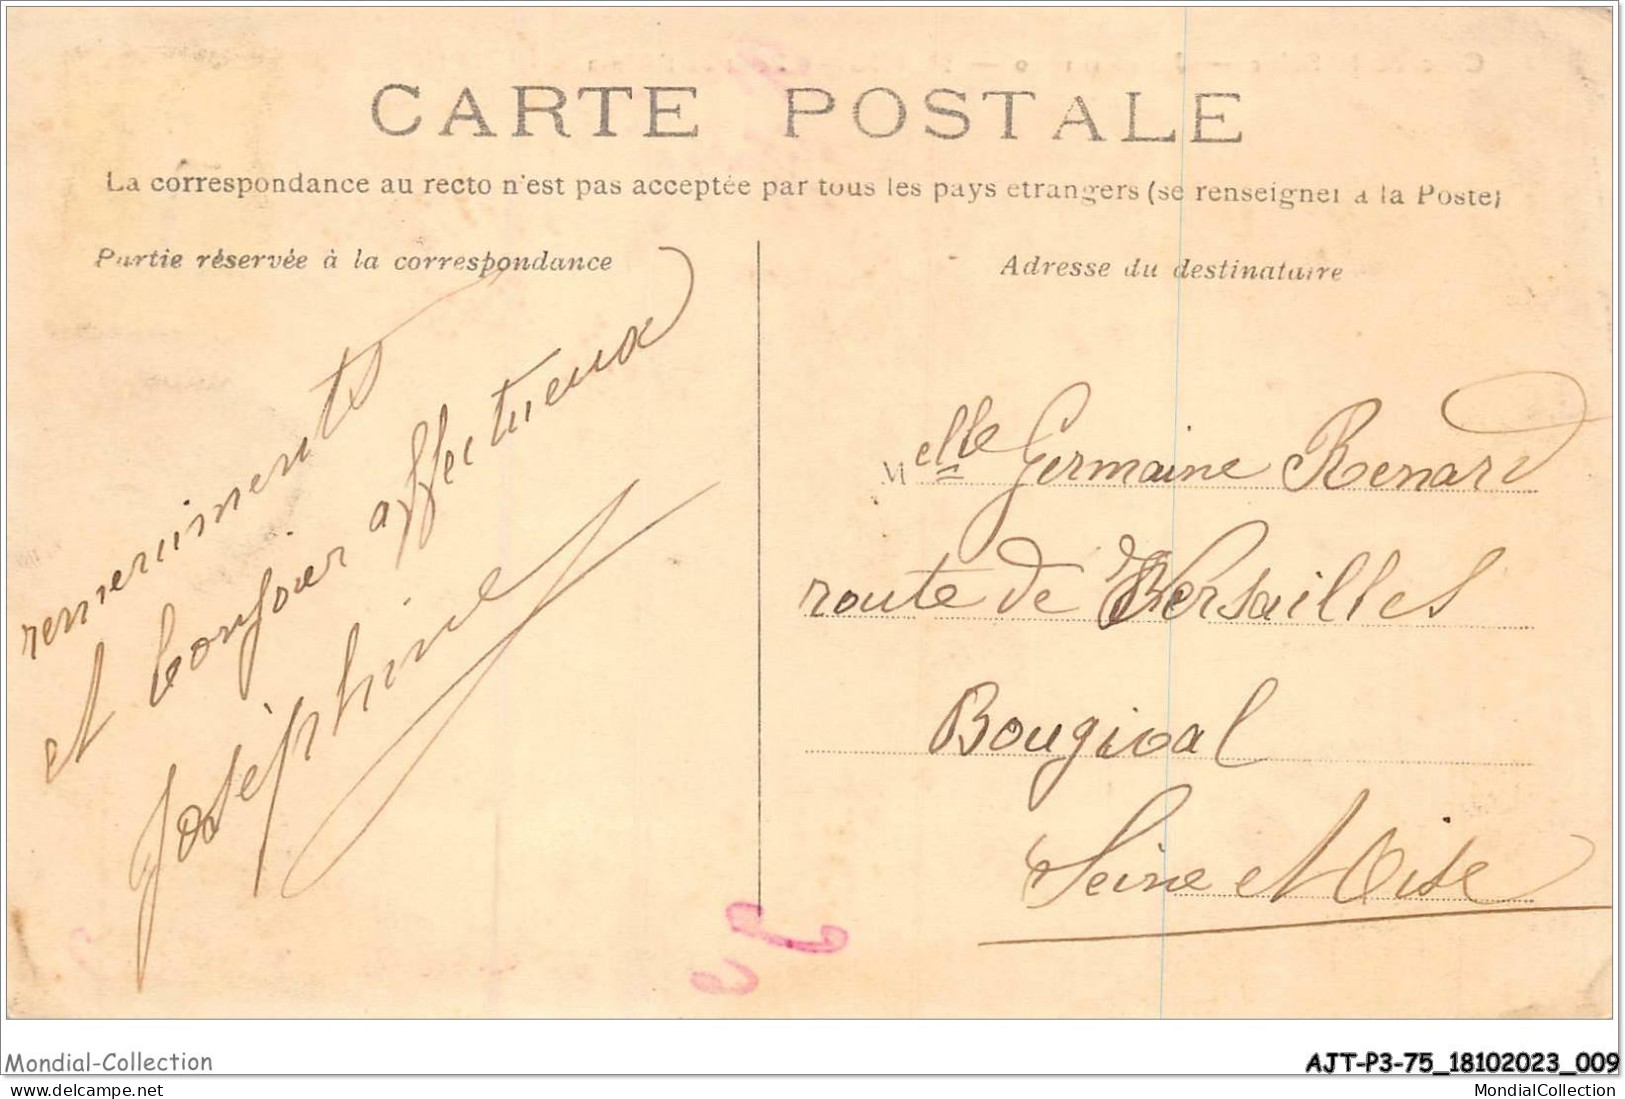 CARTE POSTALE
La correspondance au recto n'est pas acceptée par tous les pays etrangers (se renseigner à la Poste)
Partie réservée à la correspondance
Adresse du destinataire
remerciments
et bonjour affectueux
Joséphine
Melle Germaine Renard
route de Versailles
Bougival
Seine et Oise
Mondial-Collection
AJT-P3-75_18102023_009
www.delcampe.net
MondialCollection